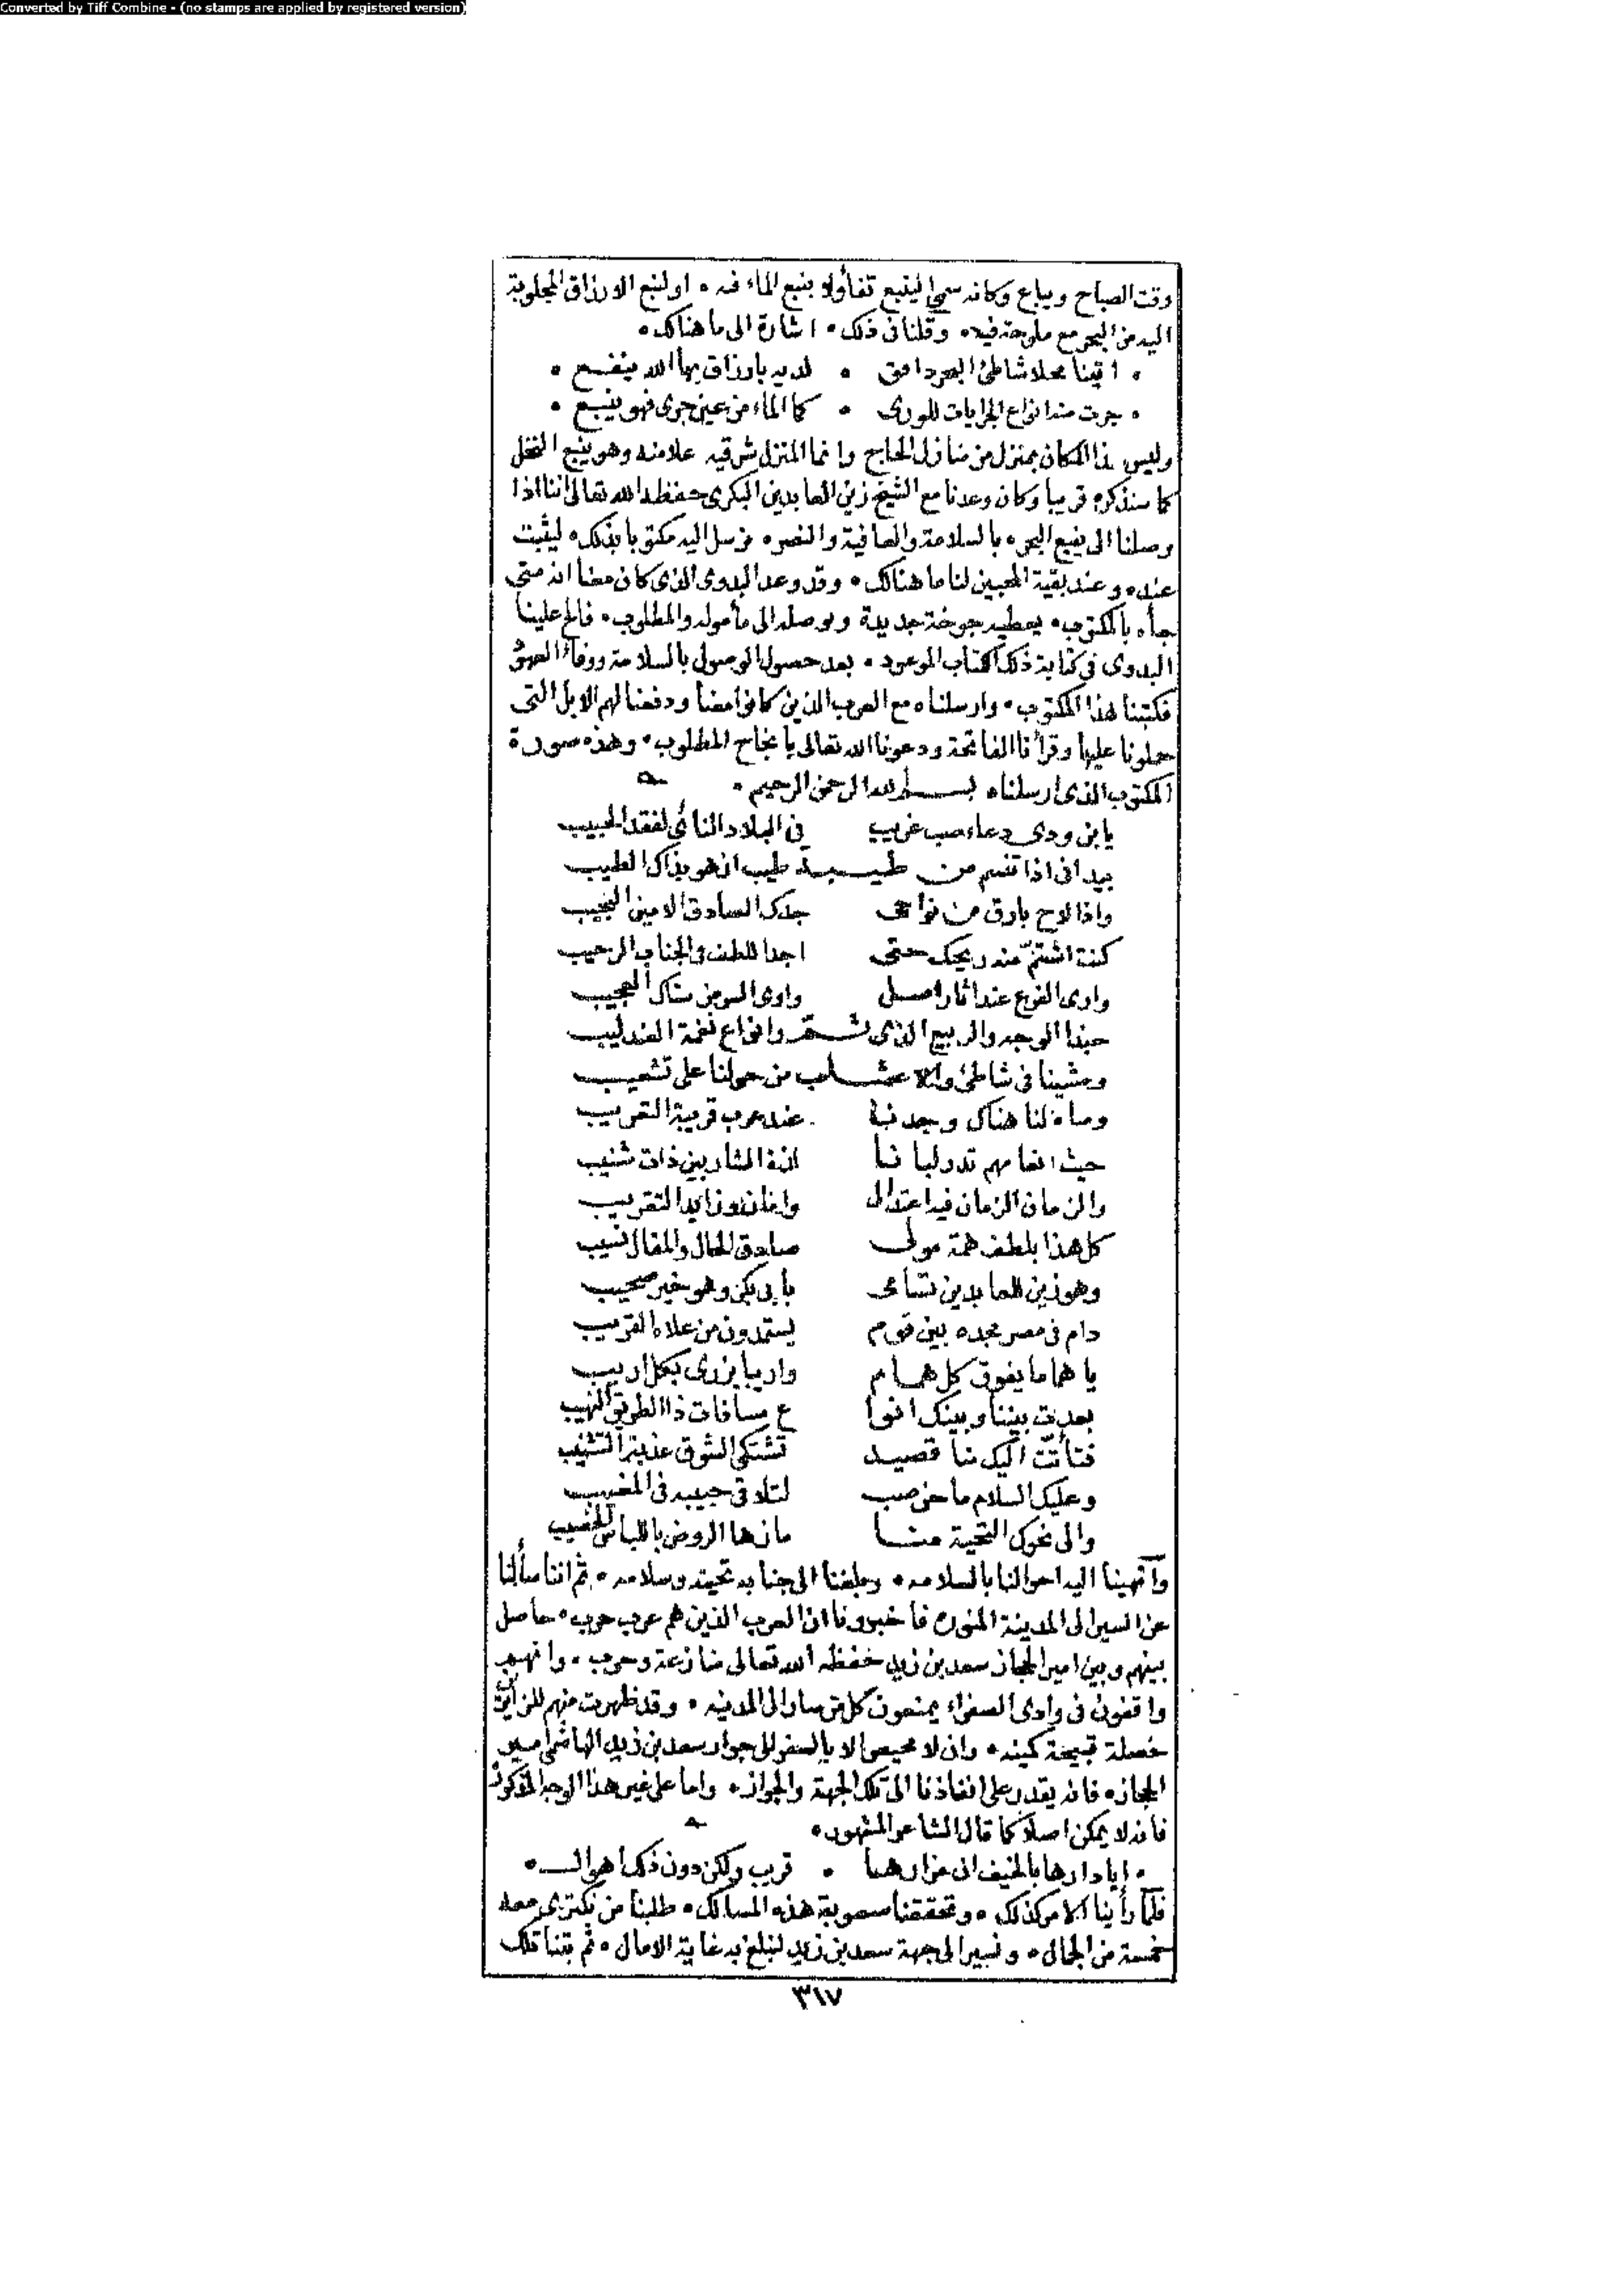 Converted by Tiff Combine - (no stamps are applied by registered version)
وقت الصباح ويباع وكانه سمي الينبع تفاؤلا بنبع الماء فيه • او لنبع الارزاق المجلوبة
اليه من البحر مع ملوحة فيه • وقلنا في ذلك • اشارة الى ما هناك •
• اتينا محلا شاطئ البحر دافق • لديه بارزاق بها الله ينفع •
• جرت منه انواع الجرايات للورى • كما الماء من عين جرى فهو ينبع •
وليس هذا المكان بمنزل من منازل الحاج وانما المنزل شرقيه علامنه وهو ينبع النخل
كما سنذكره قريبا وكان وعدنا مع الشيخ زين العابدين البكرى حفظه الله تعالى اننا اذا
وصلنا الى ينبع البحر • بالسلامة والعافية والنصر • نرسل اليه مكتوبا بذلك • ليثبت
عنده وعند بقية المحبين لنا ما هنالك • وقد وعد البدوى الذى كان معنا انه متى
جاءه بالمكتوب • يعطيه جوخة جديدة ويوصله الى مأموله والمطلوب • فالح علينا
البدوى في كتابة ذلك الكتاب الموعود • بعد حصول الوصول بالسلامة ووفاء العهود
فكتبنا هذا المكتوب • وارسلناه مع العرب الذين كانوا معنا ودفعنا لهم الابل التى
حملونا عليها وقرأنا الفاتحة ودعونا الله تعالى بانجاح المطلوب • وهذه صورة
المكتوب الذى ارسلناه بسم الله الرحمن الرحيم •
يا بن ودى دعاء صب غريب في البلاد النائى لفقد الحبيب
بيد انى اذا تنسم من طيبة طيب انهو بذاك الطيب
واذا لاح بارق من نواحى جدك الصادق الامين النجيب
كنت اشتم منه ريحك حتى اجد اللطف في الجناب الرحيب
وارى الفرع عند اثار اصل وارى السر من سناك العجيب
حبذا الوجه والربيع الذى ثم وانواع نغمة العندليب
ومشينا في شاطئ والاعشاب من حولنا على تشعيب
ومياه لنا هناك وجدنا عند عرب قريبة التعريب
حيث انعامهم تدر لبانا لذة الشاربين ذات شنيب
والزمان الزمان فيه اعتدال
كل هذا بلطف همة مولى صادق الحال والمقال نسيب
وهو زين العابدين تسامى بابى بكر وهو خير صحيب
دام في مصر مجده بين قوم يستمدون من علاه القريب
يا هماما يفوق كل همام واريبا يزرى بكل اريب
بعدت بيننا وبينك انوا ع مسافات ذا الطريق النهيب
فتأتت اليك منا قصيد تشتكى الشوق عذبة التشبيب
وعليك السلام ما حن صب لتلاقى حبيبه في المغيب
والى نحوك التحية منا ما زها الروض باللباس الخضيب
وانهينا اليه احوالنا بالسلامه • وبلغنا الى جنابه تحيته وسلامه • ثم اننا سألنا
عن السير الى المدينة المنوره فاخبرونا ان العرب الذين هم عرب حرب • حاصل
بينهم وبين امير الحجاز سعد بن زيد حفظه الله تعالى منازعة وحرب • وانهم
واقفون في وادى الصفراء يمنعون كل من سار الى المدينه • وقد ظهرت منهم للزائرين
خصلة قبيحة كمينه • وان لا محيص الا بالسفر الى جوار سعد بن زيد الهاشمى امير
الحجاز • فانه يقدر على انفاذنا الى تلك الجهة والجواز • واما على غير هذا الوجه المذكور
فانه لا يمكن اصلا كما قال الشاعر المشهور •
• ايا دارها بالخيف ان مزارها • قريب ولكن دون ذلك اهوال •
فلما رأينا الامر كذلك • وتحققنا صعوبة هذه المسالك • طلبنا من نكترى معه
خمسة من الجمال • ونسير الى جهة سعد بن زيد لنبلغ به غاية الامال • ثم بتنا تلك
٣١٧